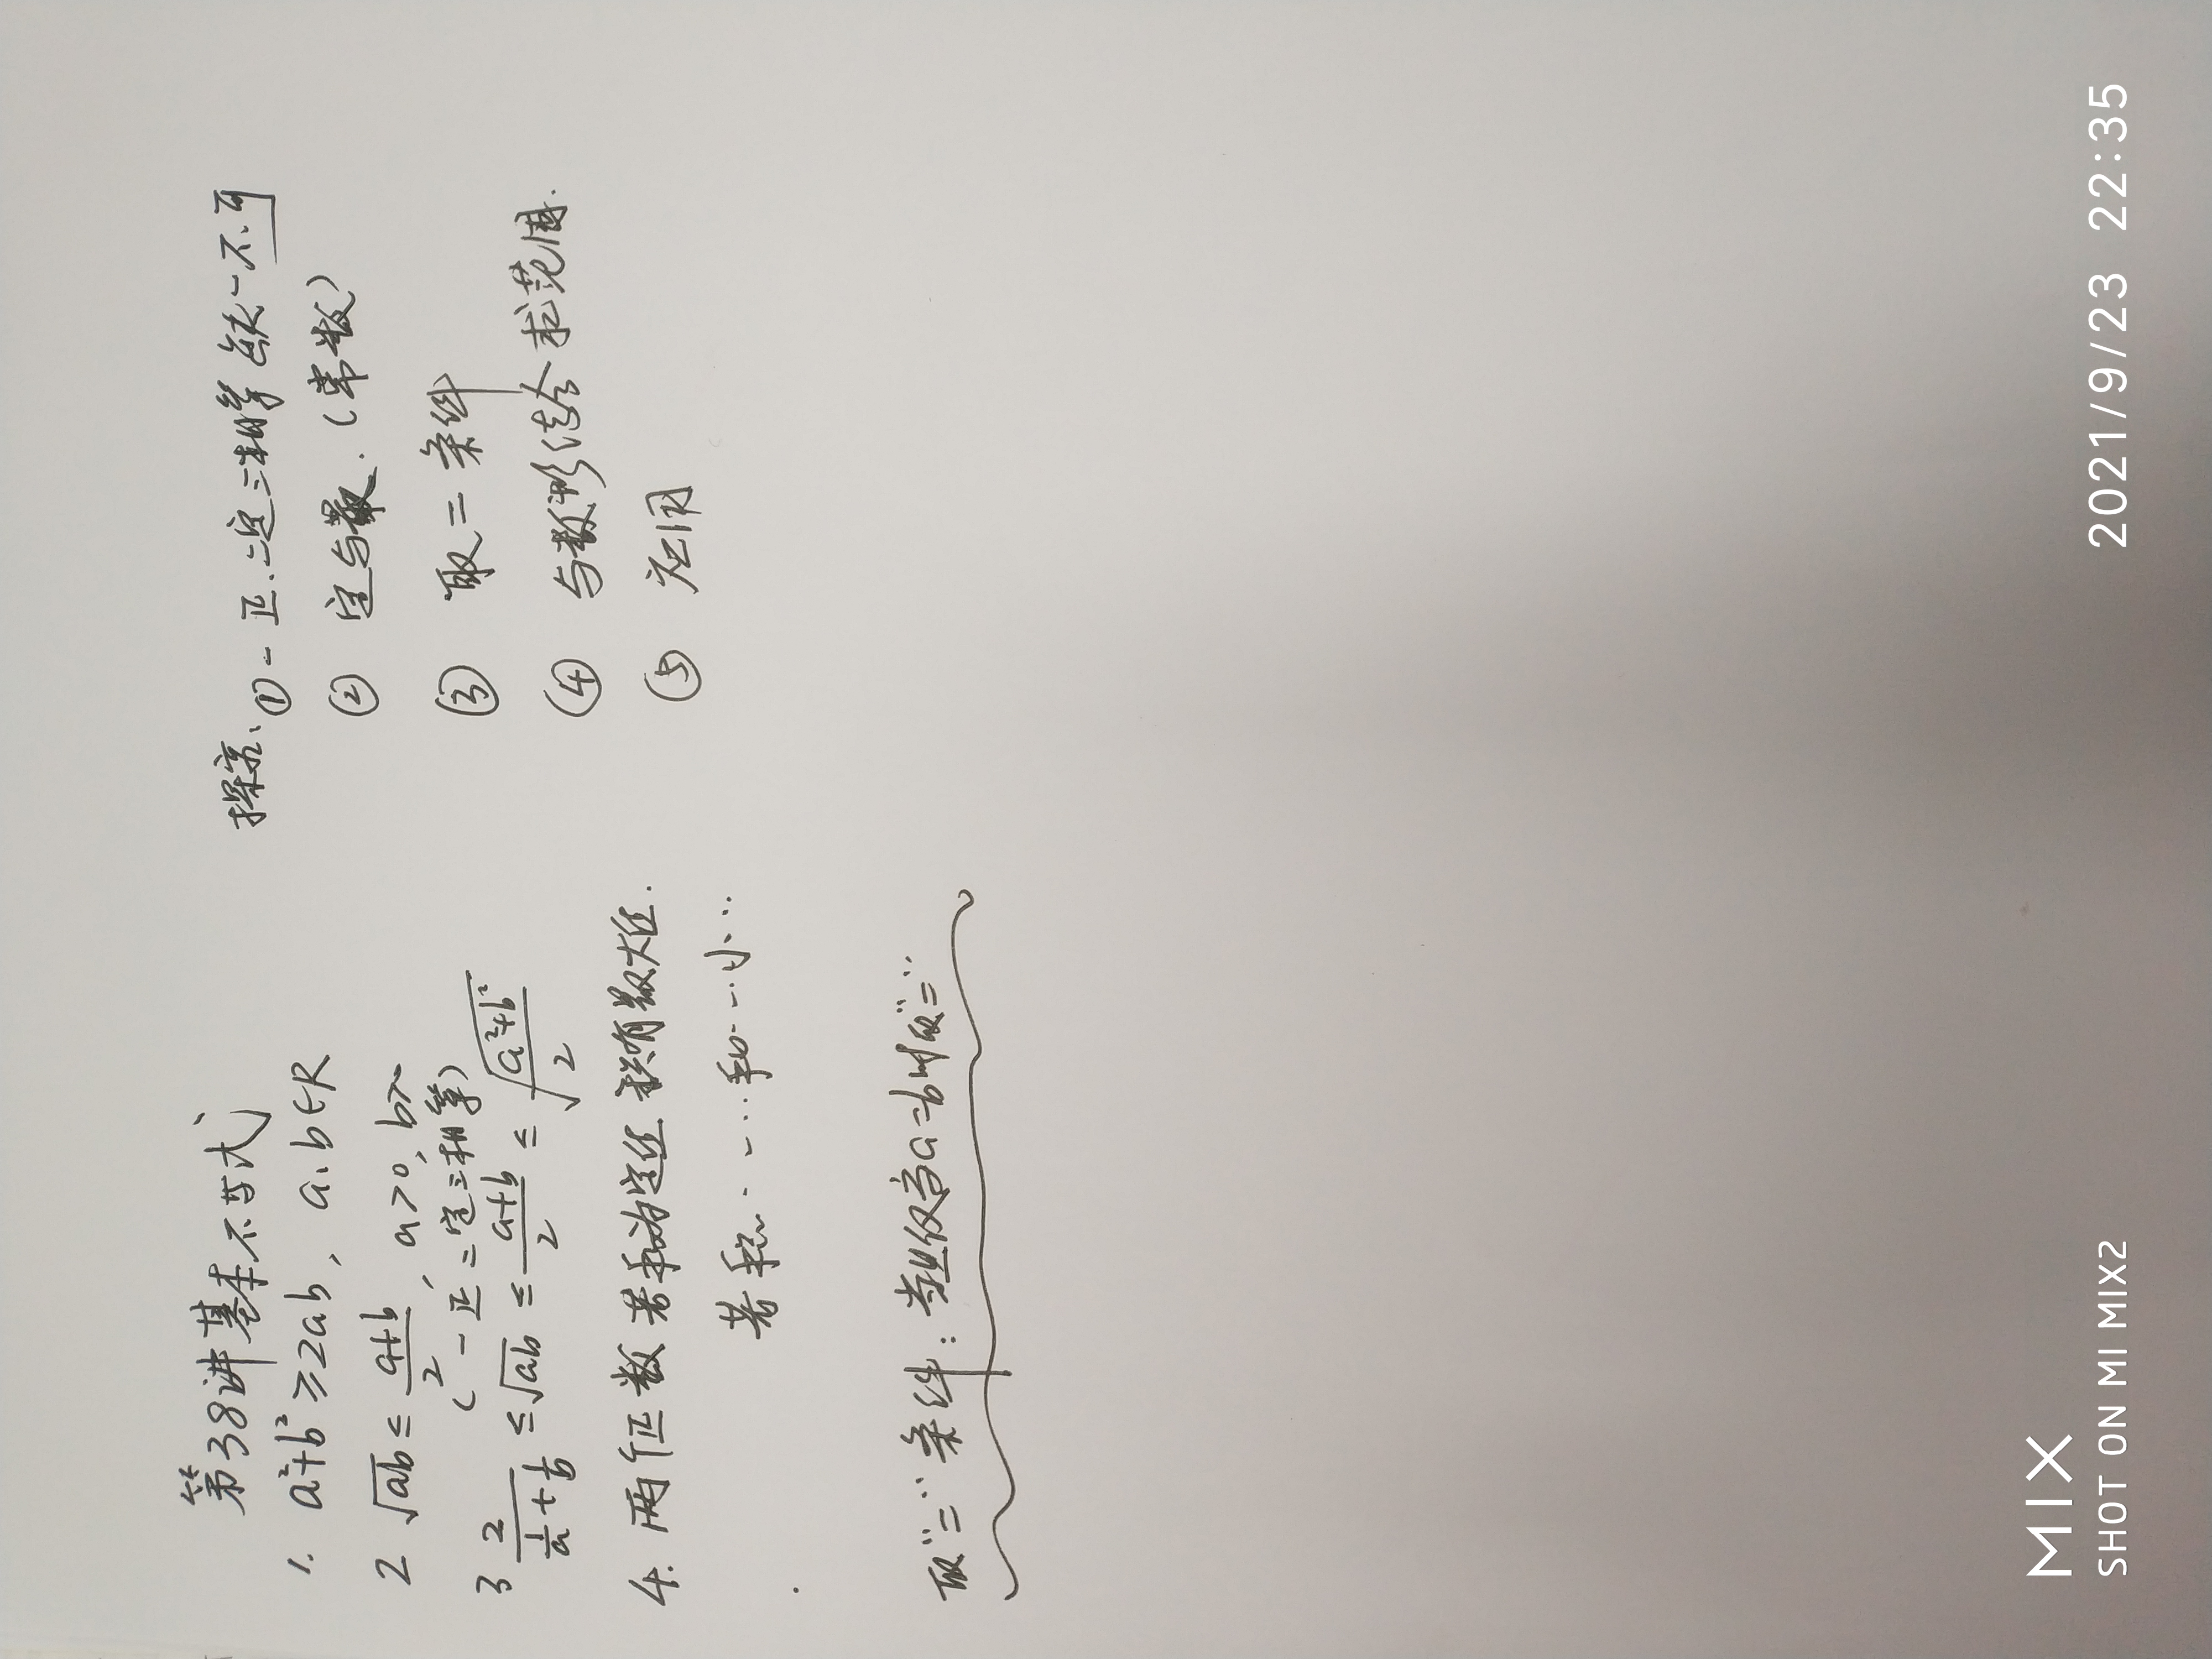 第38讲基本不等式
1. a²+b²≥2ab, a、b∈R
2 √ab ≤ (a+b)/2, a>0, b>
(一正、二定三相等)
3 2/(1/a+1/b) ≤ √ab ≤ (a+b)/2 ≤ √((a²+b²)/2)
4. 两个正数若和为定值积有最大值.
若积……和……小…
取"="条件:当且仅当a=b时取"="
探究、①一正、二定三相等缺一不可
② 定与最.(常数)
③ 取=条件
④ 与数形结合求范围.
⑤ 应用
MIX
SHOT ON MI MIX2
2021/9/23 22:35